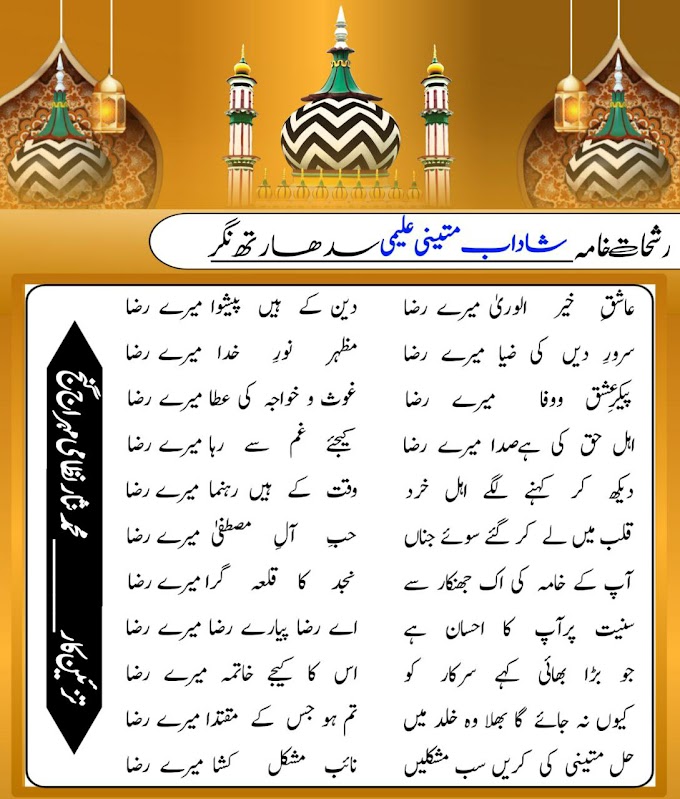 رشحات خامہ شاداب متینی علیمی سدھارتھ نگر
عاشقِ خیر الوریٰ میرے رضا دین کے ہیں پیشوا میرے رضا
سرورِ دیں کی ضیا میرے رضا مظہر نورِ خدا میرے رضا
پیکرِعشق ووفا میرے رضا غوث و خواجہ کی عطا میرے رضا
اہل حق کی ہےصدا میرے رضا کیجئے غم سے رہا میرے رضا
دیکھ کر کہنے لگے اہل خرد وقت کے ہیں رہنما میرے رضا
قلب میں لے کر گئے سوئے جناں حبِ آلِ مصطفیٰ میرے رضا
آپ کے خامہ کی اک جھنکار سے نجد کا قلعہ گرا میرے رضا
سنیت پرآپ کا احسان ہے اے رضا پیارے رضا میرے رضا
جو بڑا بھائی کہے سرکار کو اس کا کیجے خاتمہ میرے رضا
کیوں نہ جائے گا بھلا وہ خلد میں تم ہو جس کے مقتدا میرے رضا
حل متینی کی کریں سب مشکلیں نائب مشکل کشا میرے رضا
تزئین کار محمد نثار نظامی مہراج گنج